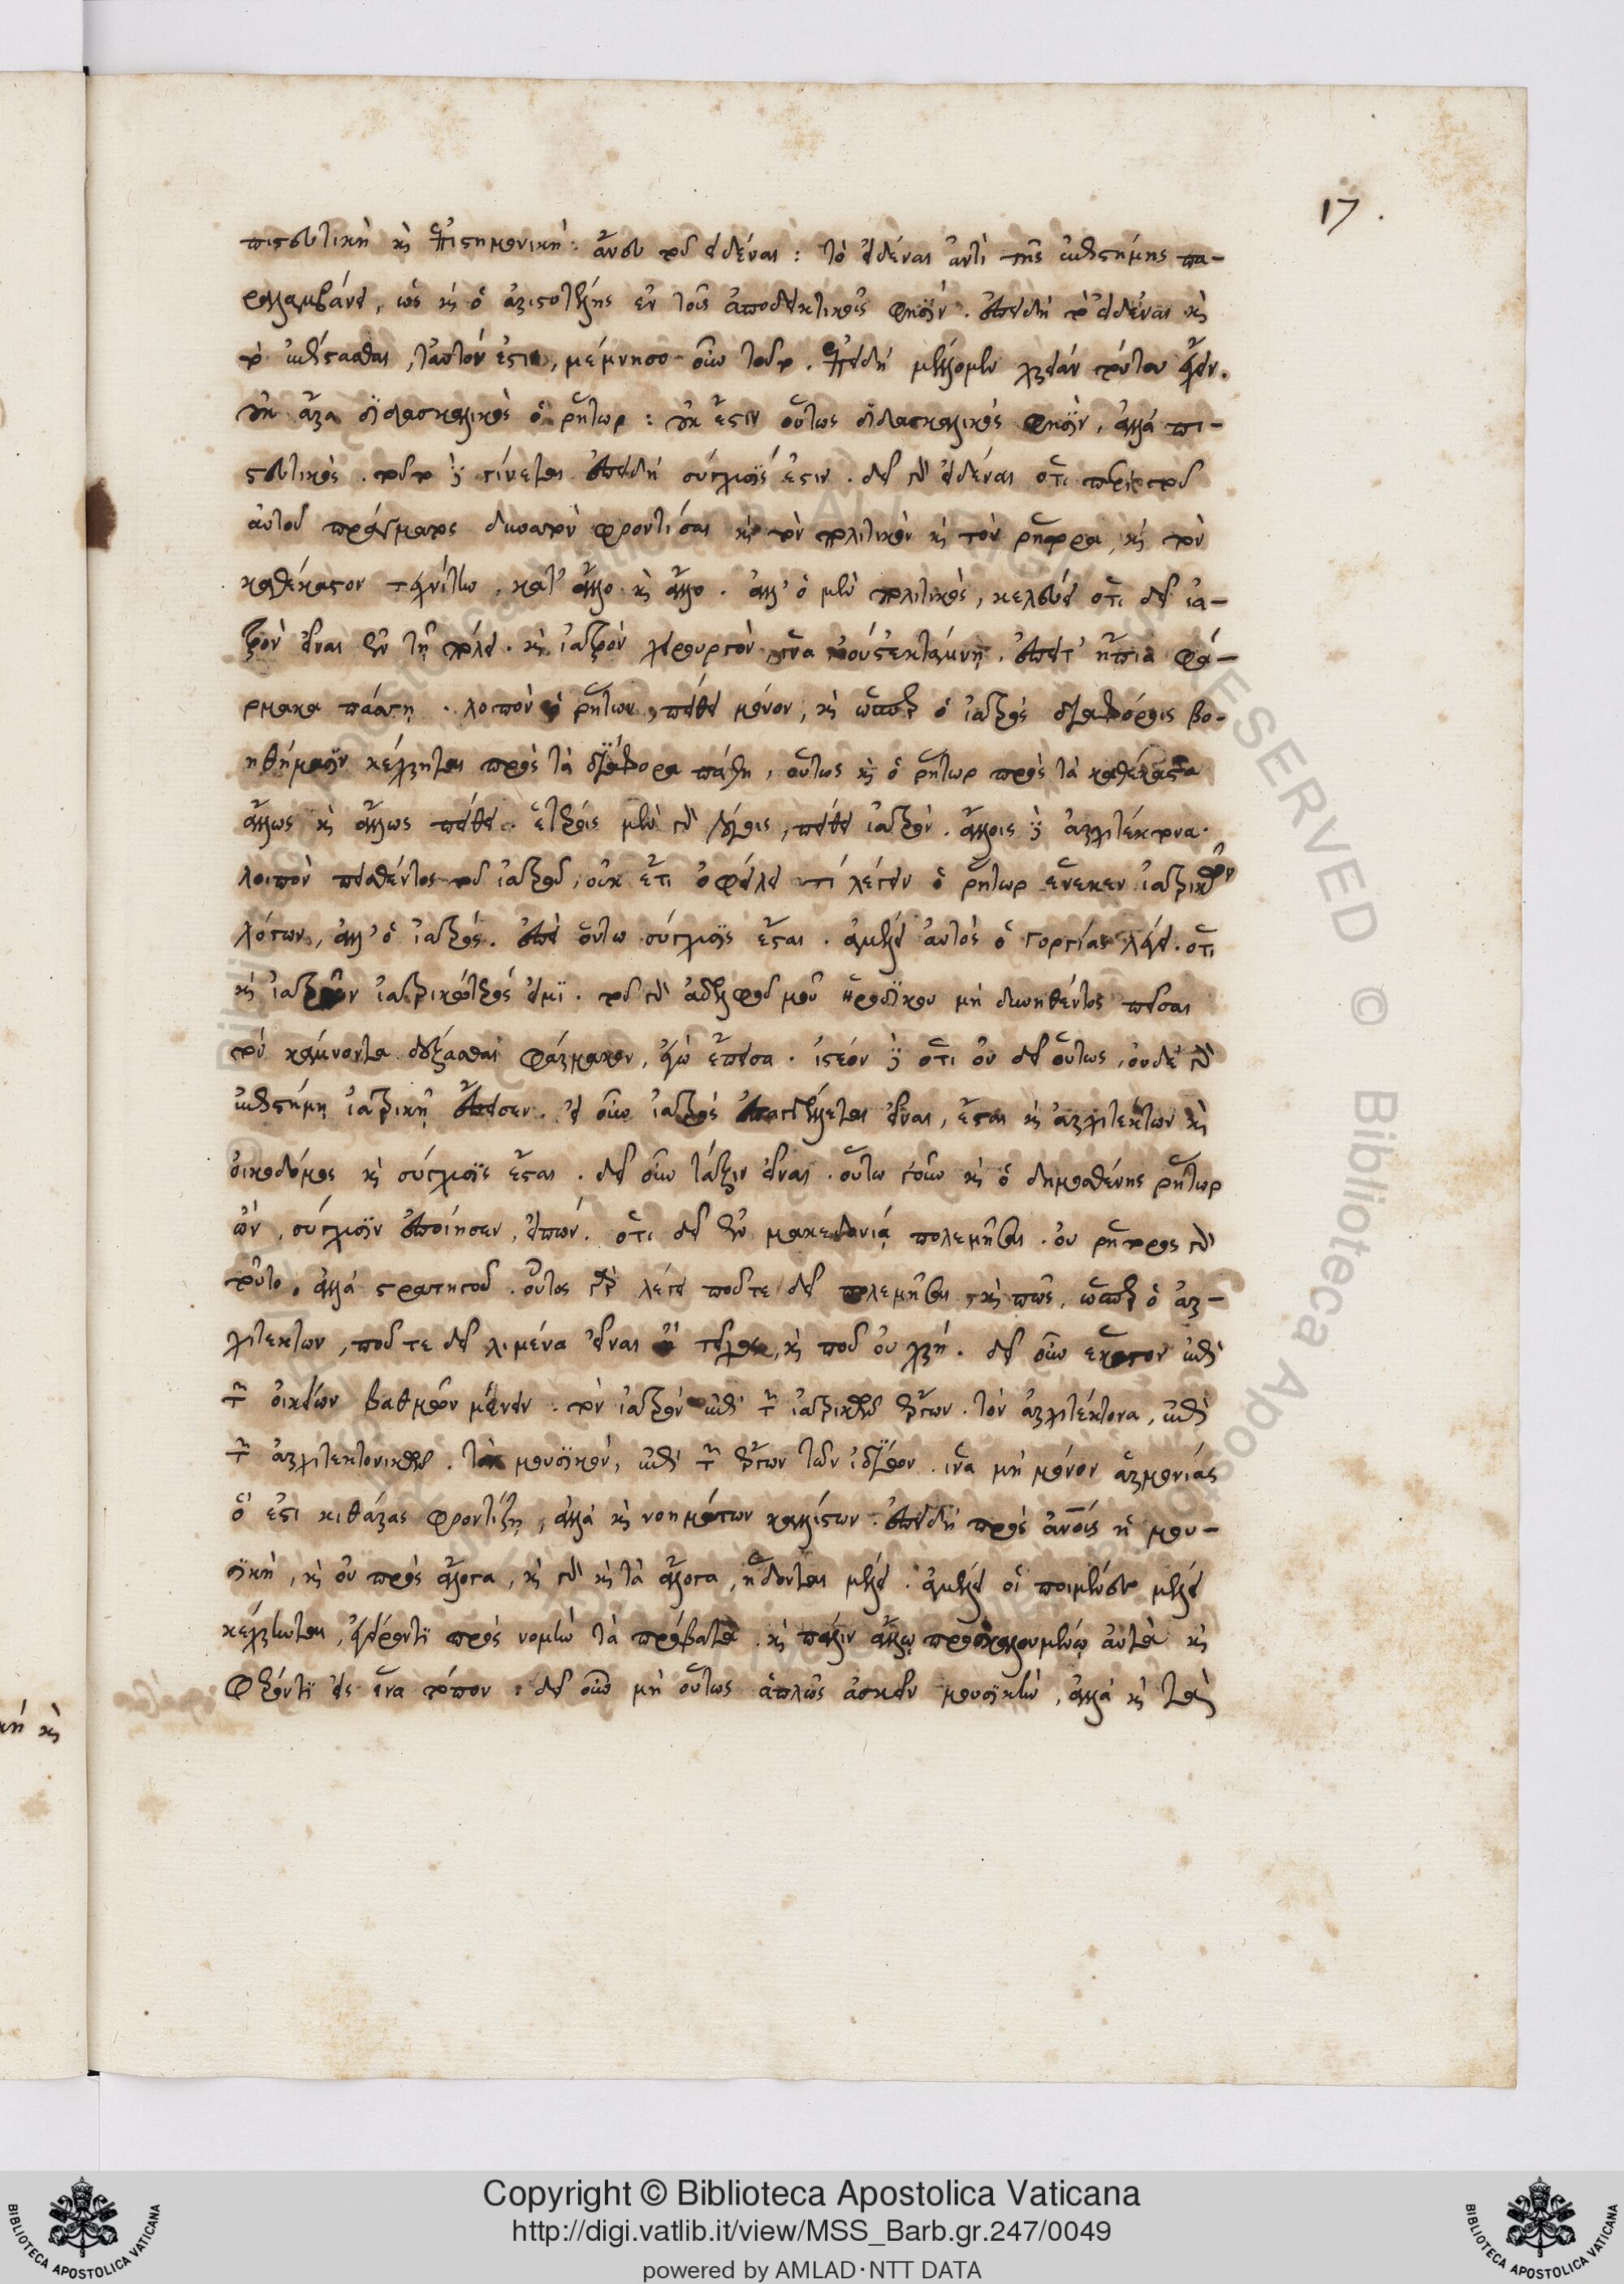 17.
πιστευτικὴ καὶ ἐπιστημονικὴ· ἄνευ τοῦ εἰδέναι: τὸ εἰδέναι ἀντὶ τῆς ἐπιστήμης πα-
ραλαμβάνει, ὡς καὶ ὁ ἀριστοτέλης ἐν τοῖς ἀποδεικτικοῖς φησίν. ἐπειδὴ τὸ εἰδέναι καὶ
τὸ ἐπίστασθαι, ταυτόν ἐστι, μέμνησο οὖν τοῦτο. ἐπειδὴ μέλλομεν χρείαν τούτου ἔχειν.
οὐκ ἄρα διδασκαλικὸς ὁ ῥήτωρ: οὐκ ἔστιν οὕτως διδασκαλικός φησίν, ἀλλὰ πι-
στευτικὸς. τοῦτο δὲ γίνεται ἐπειδὴ σύγχυσίς ἐστιν. δεῖ γὰρ εἰδέναι ὅτι περὶ τοῦ
αὐτοῦ πράγματος δυνατὸν φροντίσαι καὶ τὸν πολιτικὸν καὶ τὸν ῥήτορα, καὶ τὸν
καθέκαστον τεχνίτην, κατ' ἄλλο καὶ ἄλλο. ἀλλ' ὁ μὲν πολιτικὸς, κελεύει ὅτι δεῖ ἰα-
τρὸν εἶναι ἐν τῇ πόλει. καὶ ἰατρὸν χειρουργὸν ἵνα ἐκτάμνῃ. ἐπεὶ τ' ἤπια φά-
ρμακα πάσσῃ. λοιπὸν ὁ ῥήτωρ, πείθει μόνον, καὶ ὥσπερ ὁ ἰατρὸς διαφόροις βο-
ηθήμασιν κέχρηται πρὸς τὰ διάφορα πάθη, οὕτως καὶ ὁ ῥήτωρ πρὸς τὰ καθέκαστα
ἄλλως καὶ ἄλλως πείθει. ἑτέροις μὲν γὰρ λόγοις, πείθει ἰατρόν. ἄλλοις δὲ ἀρχιτέκτονα.
λοιπὸν πεισθέντος τοῦ ἰατροῦ, οὐκ ἔτι ὀφείλει τί λέγειν ὁ ῥήτωρ ἕνεκεν ἰατρικῶν
λόγων, ἀλλ' ὁ ἰατρός. ἐπεὶ οὕτω σύγχυσις ἔσται. ἀμέλει αὐτὸς ὁ γοργίας λέγει. ὅτι
καὶ ἰατρῶν ἰατρικώτερός εἰμι. τοῦ γὰρ ἀδελφοῦ μου ἡροδίκου μὴ δυνηθέντος πεῖσαι
τὸν κάμνοντα δέξασθαι φάρμακον, ἐγὼ ἔπεισα. ἰστέον δὲ ὅτι οὐ δεῖ οὕτως, οὐδὲ γὰρ
ἐπιστήμῃ ἰατρικῇ ἔπεισεν. εἰ οὖν ἰατρὸς ἐπαγγέλλεται εἶναι, ἔσται καὶ ἀρχιτέκτων καὶ
οἰκοδόμος καὶ σύγχυσις ἔσται. δεῖ οὖν τάξιν εἶναι. οὕτω γοῦν καὶ ὁ δημοσθένης ῥήτωρ
ὢν, σύγχυσιν ἐποίησεν, εἰπών. ὅτι δεῖ ἐν μακεδονίᾳ πολεμῆσαι. οὐ ῥήτορος γὰρ
τοῦτο. ἀλλὰ στρατηγοῦ. οὗτος γὰρ λέγει ποῦ τε δεῖ πολεμῆσαι, καὶ πῶς, ὥσπερ ὁ ἀρ-
χιτέκτων, ποῦ τε δεῖ λιμένα εἶναι ἢ τεῖχος, καὶ ποῦ οὐ χρή. δεῖ οὖν ἕκαστον ἐπὶ
τῶν οἰκείων βαθμῶν μένειν. τὸν ἰατρὸν ἐπὶ τῶν ἰατρικῶν ἔργων. τὸν ἀρχιτέκτονα, ἐπὶ
τῶν ἀρχιτεκτονικῶν. τὸν μουσικὸν, ἐπὶ τῶν ἔργων τῶν ἰδίων. ἵνα μὴ μόνον ἁρμονίας
ὅ ἐστι κιθάρας φροντίζῃ, ἀλλὰ καὶ νοημάτων καλλίστων. ἐπειδὴ πρὸς ἀνοῖς ἡ μου-
σικὴ, καὶ οὐ πρὸς ἄλογα, καὶ γὰρ καὶ τὰ ἄλογα, ἥδονται μέλει. ἀμέλει οἱ ποιμένες μέλει
κέχρηνται, φέροντι πρὸς νομὴν τὰ πρόβατα. καὶ πάλιν ἄλλῳ προσκαλουμένῳ αὐτὰ καὶ
φέροντι εἰς ἕνα τόπον. δεῖ οὖν μὴ οὕτως ἁπλῶς ἀσκεῖν μουσικὴν, ἀλλὰ καὶ τὰς
Copyright © Biblioteca Apostolica Vaticana
http://digi.vatlib.it/view/MSS_Barb.gr.247/0049
powered by AMLAD·NTT DATA
BIBLIOTECA APOSTOLICA VATICANA
BIBLIOTECA APOSTOLICA VATICANA